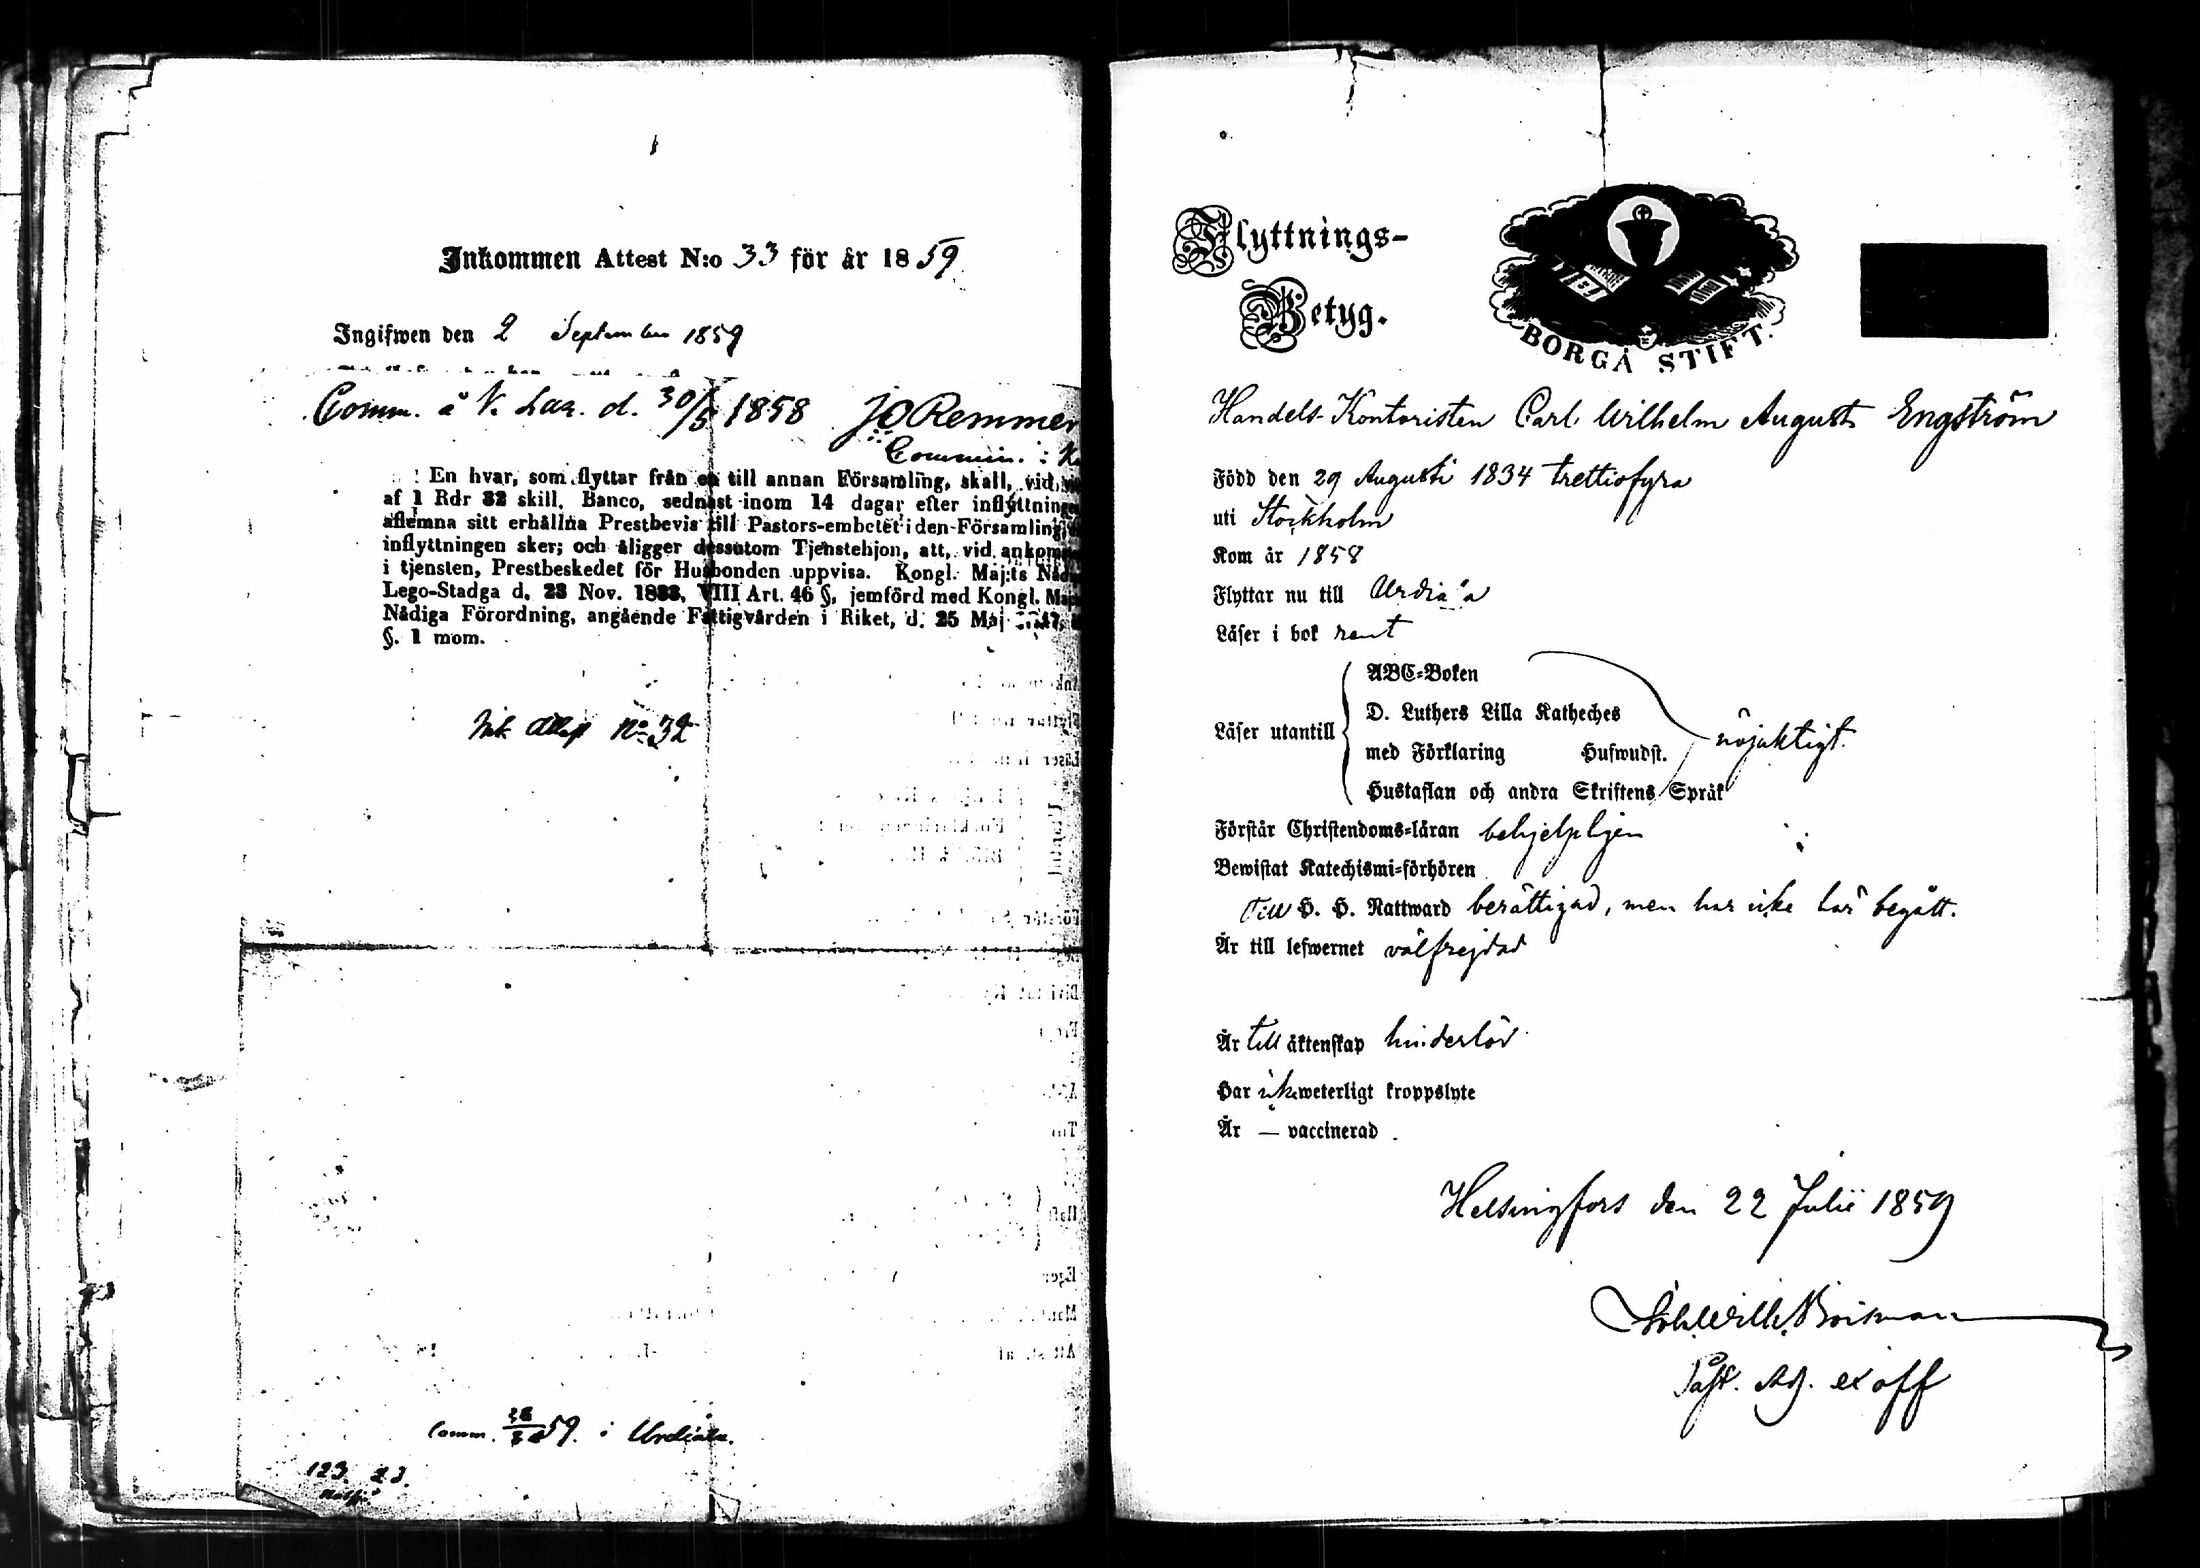 Inkommen Attest N:o 33 för år 1859
Ingifwen den 2 September 1859
Comm. å N. Laz. d. 30/5 1858 JORemmer
Commin. :
En hvar, som flyttar från en till annan Församling, skall, vid
af 1 Rdr 32 skill. Banco, sednast inom 14 dagar efter inflyttninge
aflemna sitt erhållna Prestbevis till Pastors-embetet i den Församling,
inflyttningen sker; och åligger dessutom Tjenstehjon, att, vid ankom
i tjensten, Prestbeskedet för Husbonden uppvisa. Kongl. Maj:ts Nåd
Lego-Stadga d. 23 Nov. 1833, VIII Art. 46 §, jemförd med Kongl. Maj
Nådiga Förordning, angående Fattigvården i Riket, d. 25 Maj
§. 1 mom.
No 32
Comm. 59. i Urdiala.
123. 23.
Flyttnings-
Betyg.
BORGÅ STIFT.
Handels-Kontoristen Carl Wilhelm August Engström
Född den 29 Augusti 1834 trettiofyra
uti Stockholm
Kom år 1858
Flyttar nu till Urdiala
Läser i bok rent
Läser utantill
ABC-Boken
D. Luthers Lilla Katheches
med Förklaring Hufwudst.
Hustaflan och andra Skriftens Språk
nöjaktigt.
Förstår Christendoms-läran behjelpligen
Bewistat Katechismi-förhören
Till H. H. Nattward berättigad, men har icke här begått.
Är till lefwernet välfrejdad
Är till äktenskap hinderlös
Har icke weterligt kroppslyte
Är — vaccinerad.
Helsingfors den 22 Julii 1859
Past. Adj. ex off